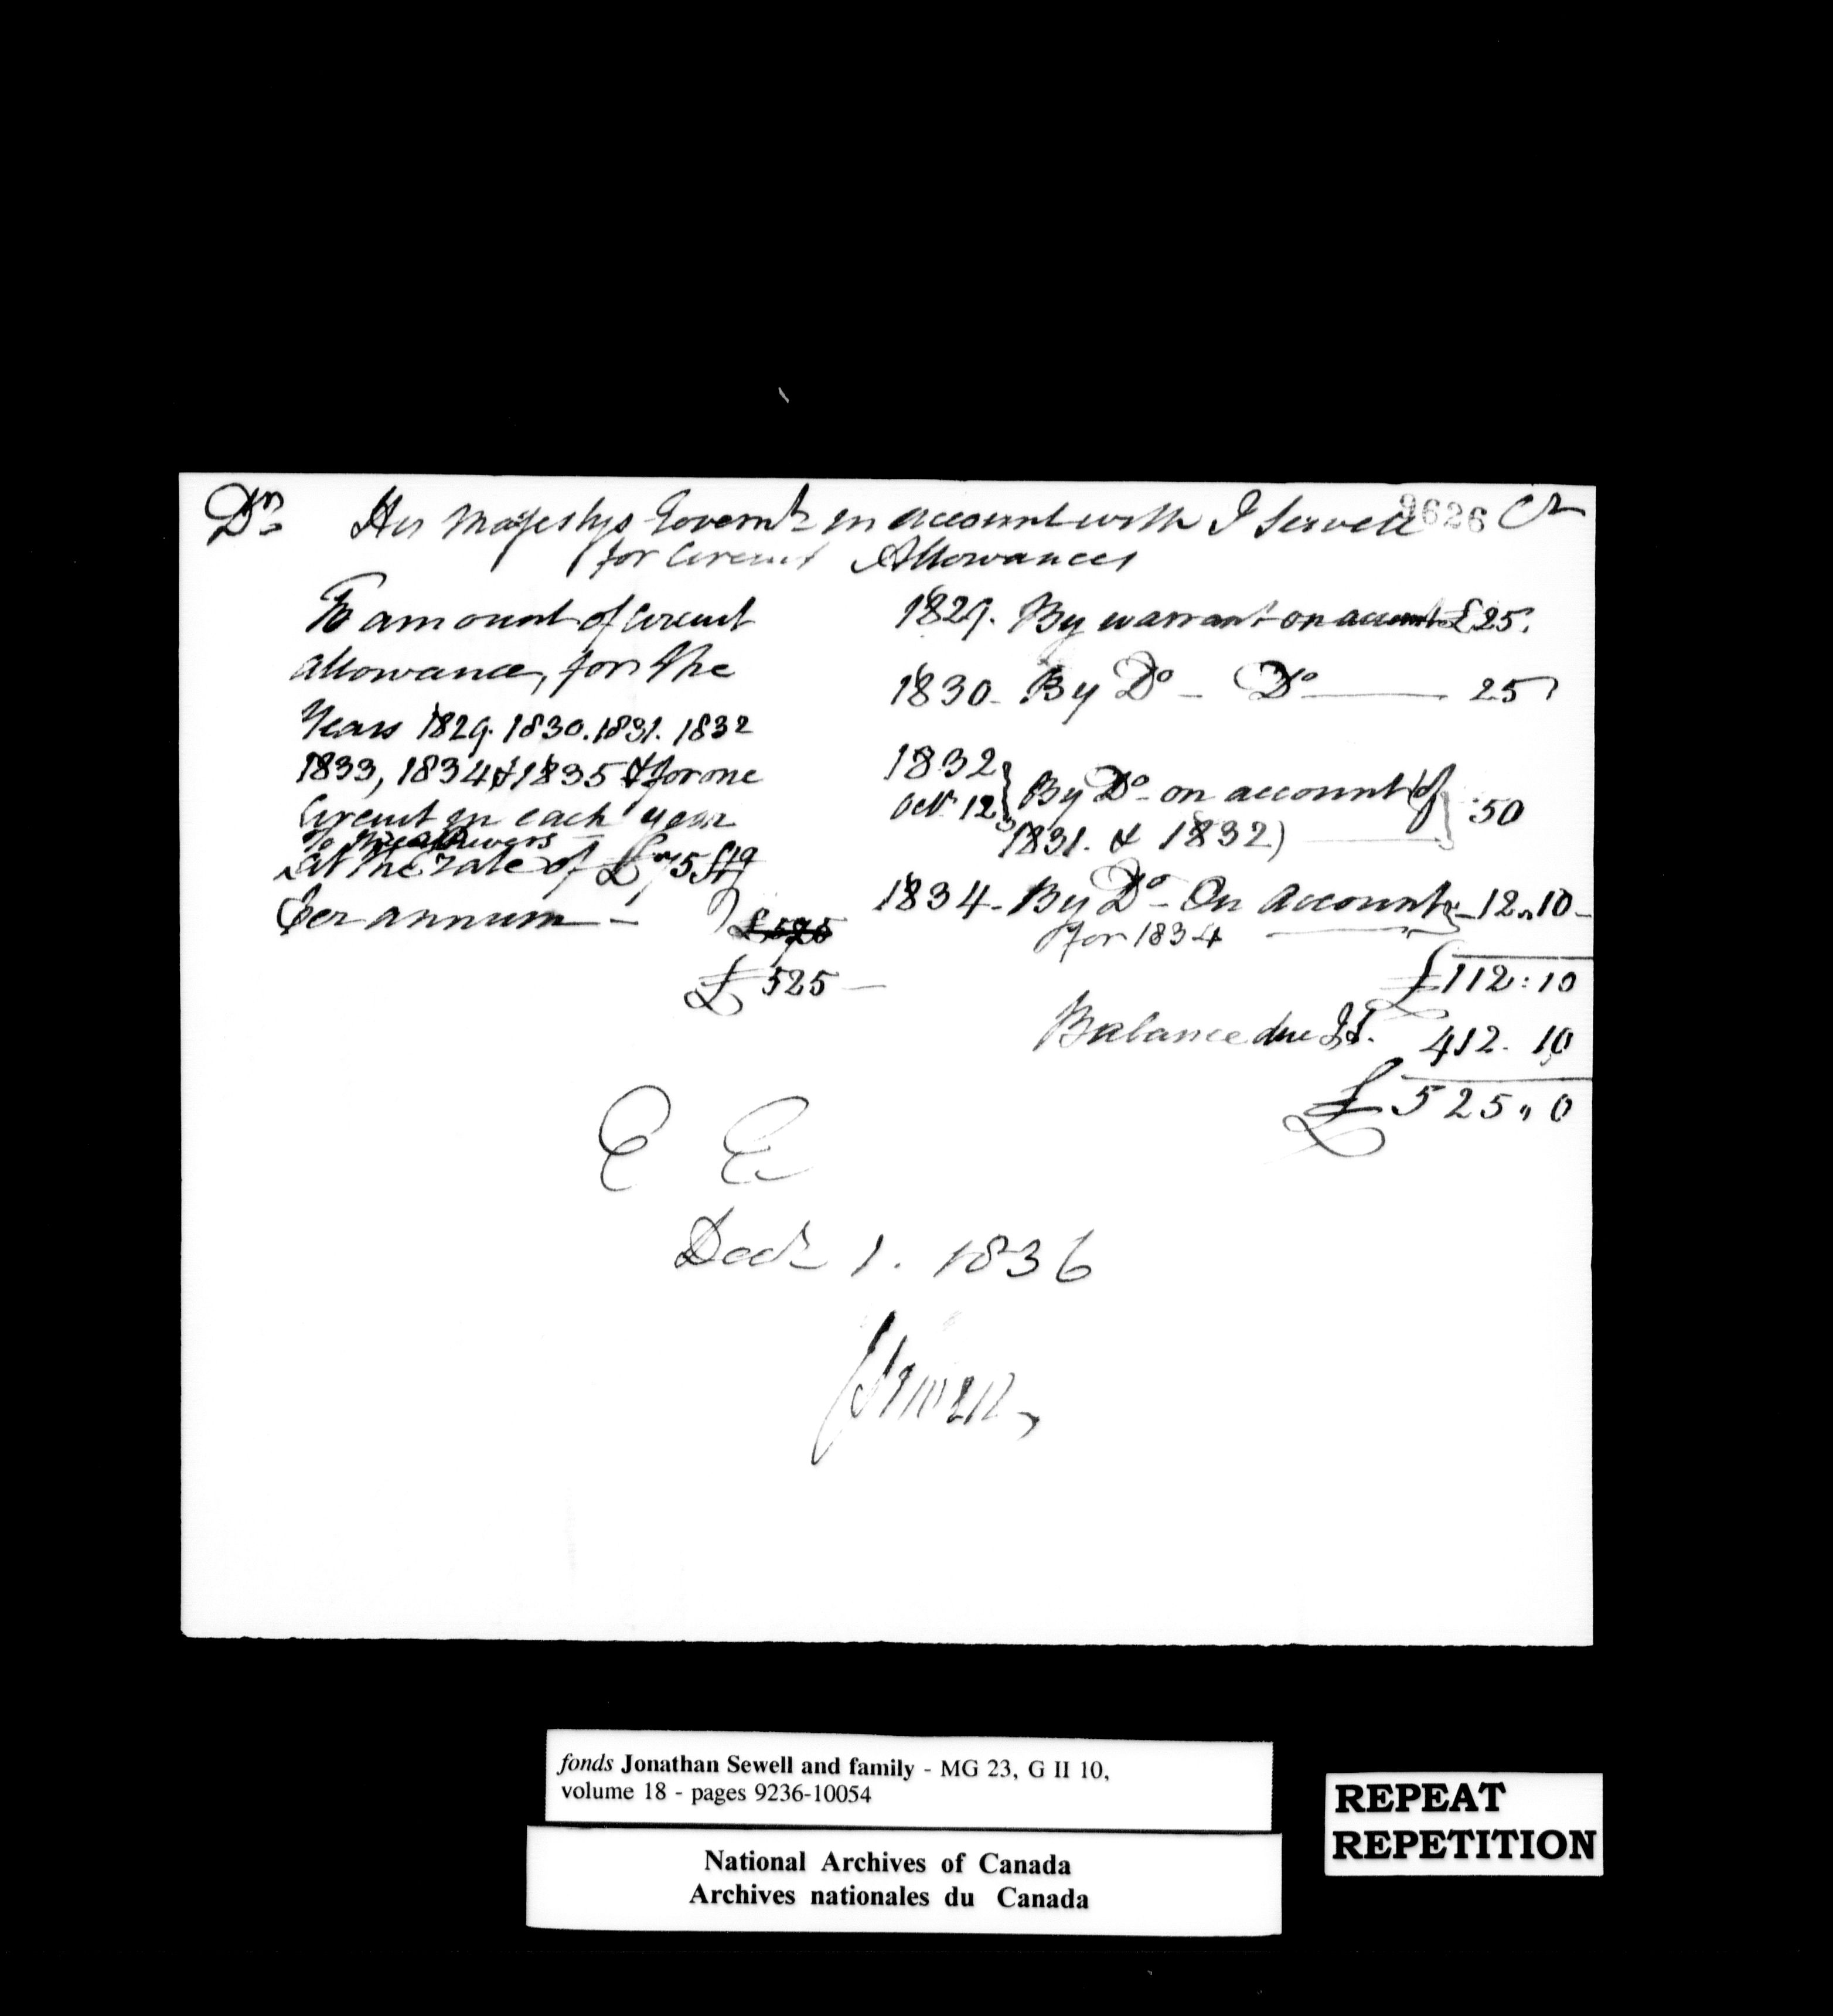 Dr. His Majestys Governt in account with J Sewell 9626 Cr
for Circuit Allowances
To amount of Circuit
allowance, for the
Years 1829. 1830. 1831. 1832
1833, 1834 & 1835 & for one
Circuit in each year
to Three Rivers
at the rate of £75 Stg
per annum –
£525
£ 525 –
1829. By warrant on account £25.
1830 – By Do – Do 25
1832
Octr 12 } By Do – on account of
1831. & 1832) :50
1834 – By Do – On Account – 12 " 10 –
for 1834
£112 : 10
Balance due J S. 412. 10
£ 525 " 0
E E
Decr 1. 1836
J Sewell
fonds Jonathan Sewell and family - MG 23, G II 10,
volume 18 - pages 9236-10054
National Archives of Canada
Archives nationales du Canada
REPEAT
REPETITION